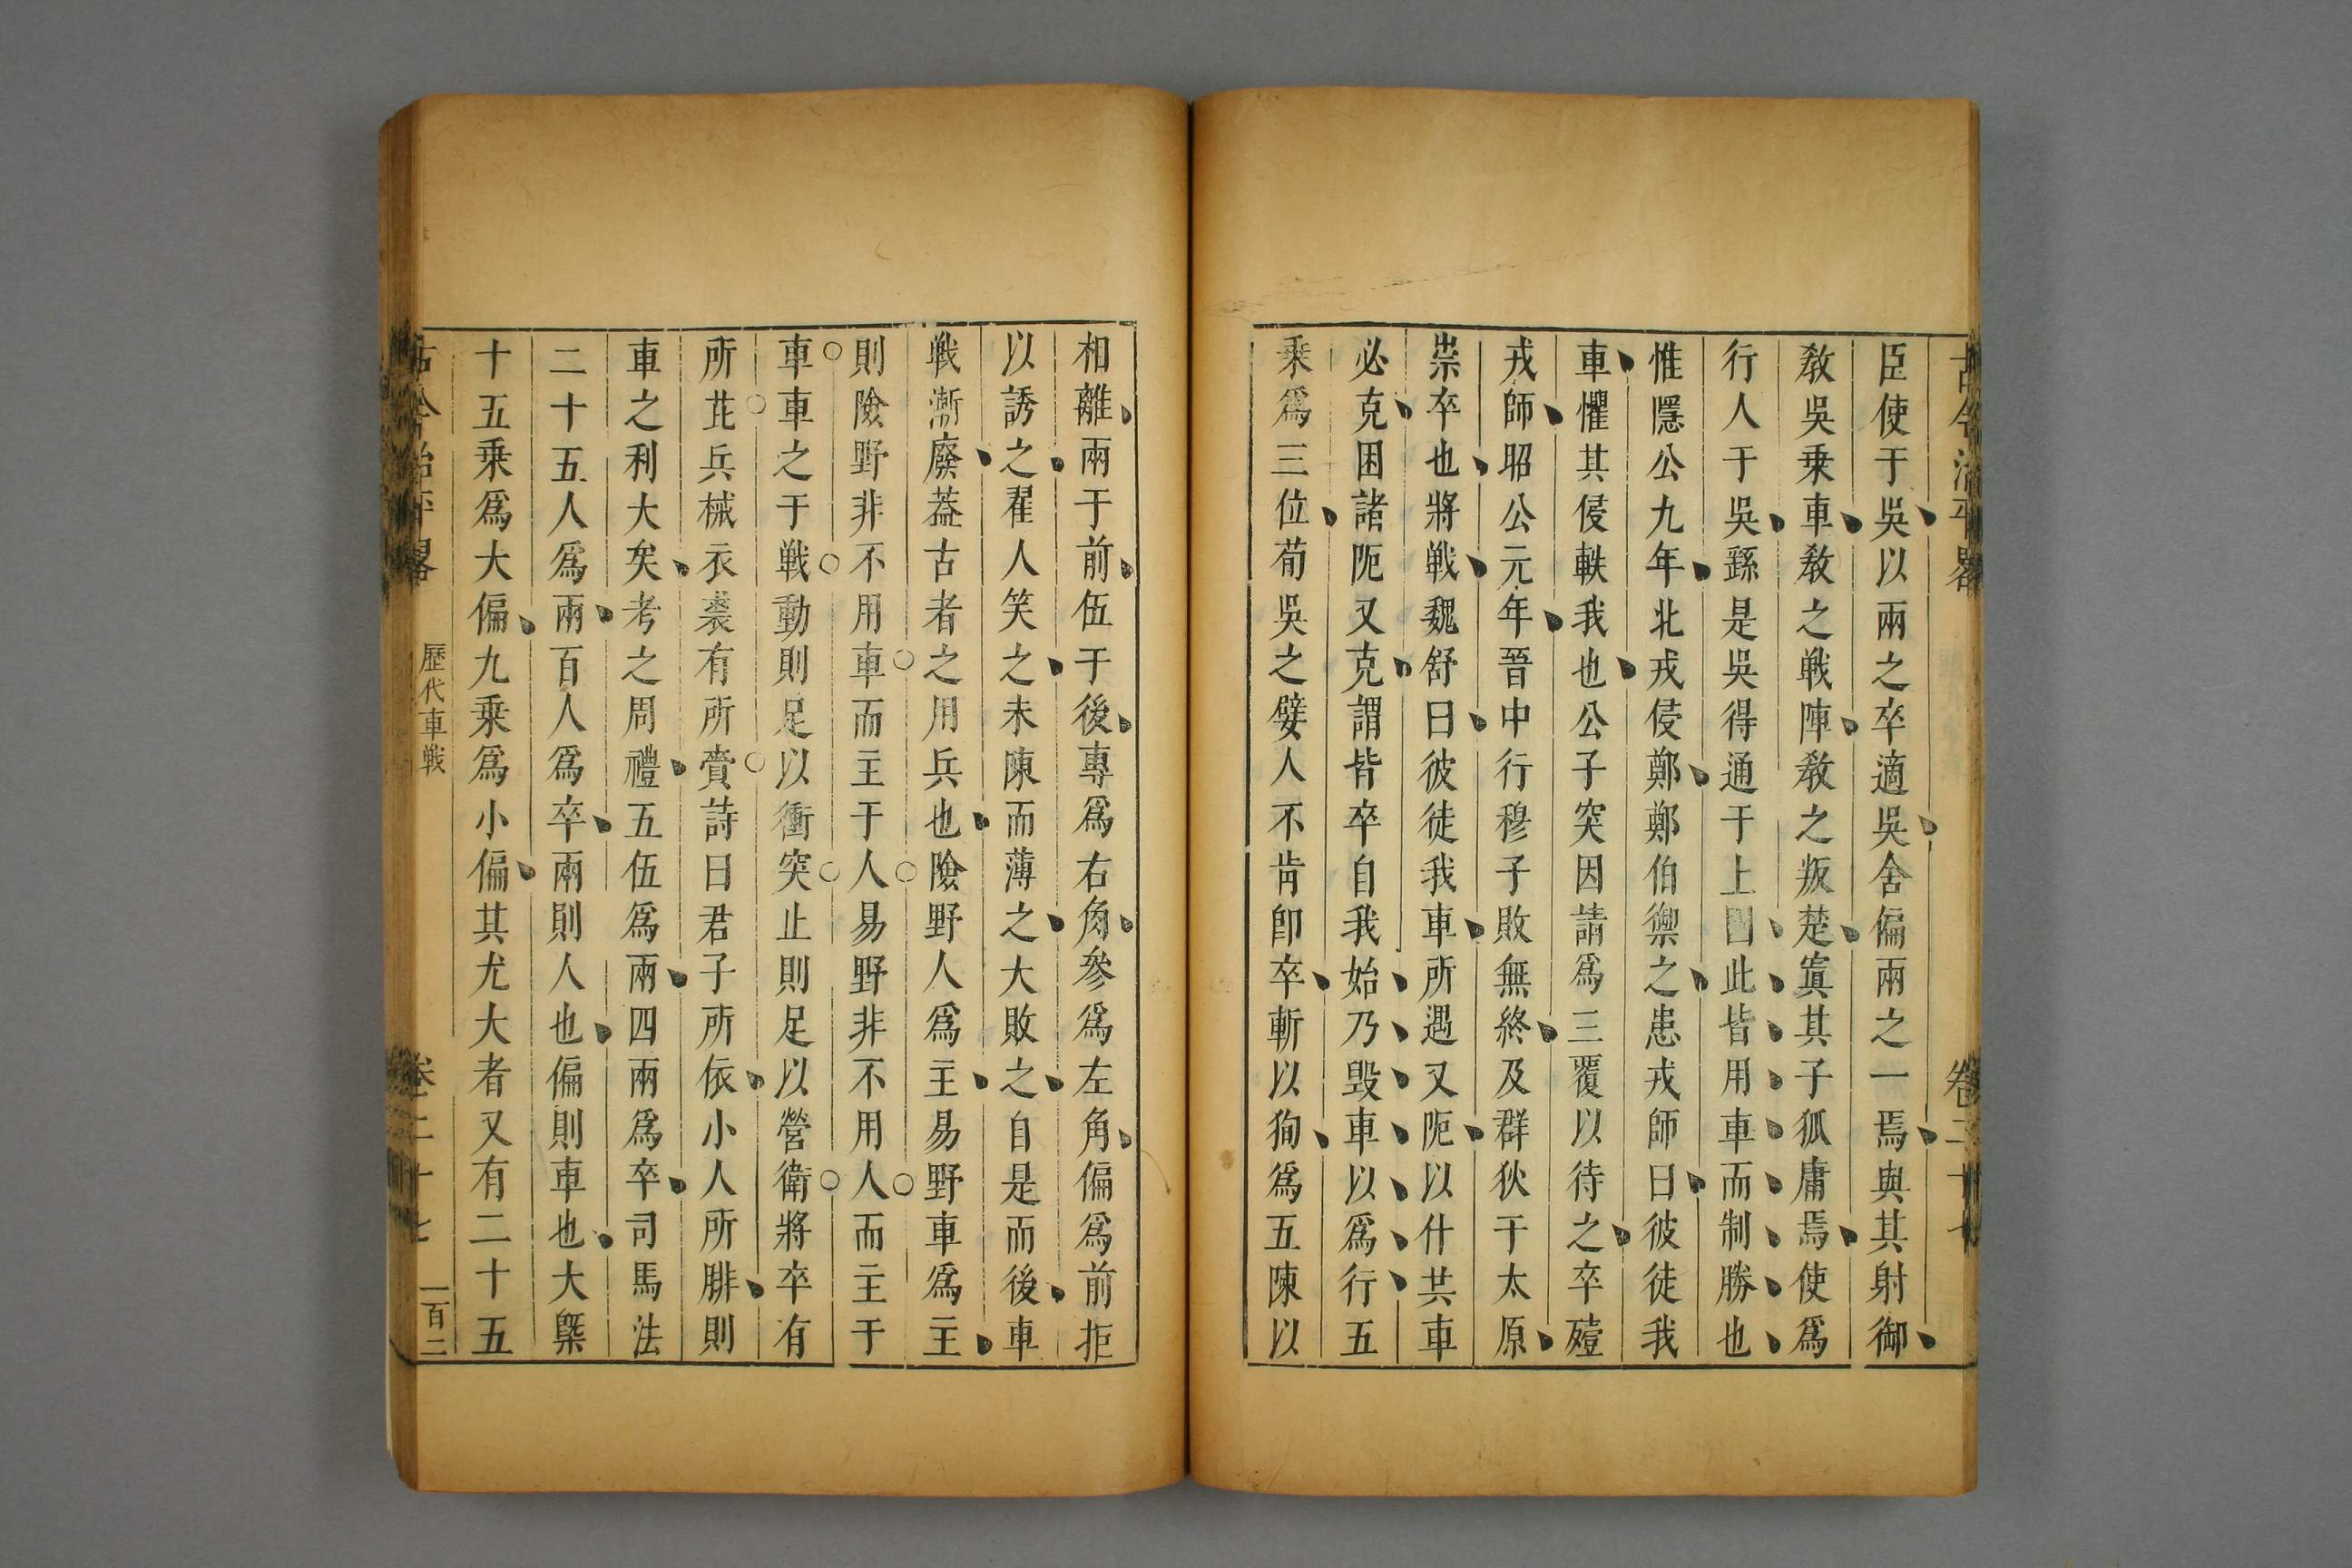 古今治平畧 卷二十七
臣使于吳以兩之卒適吳舍偏兩之一焉與其射御
教吳乗車教之戰陣教之叛楚寘其子狐庸焉使爲
行人于吳繇是吳得通于上國此皆用車而制勝也
惟隱公九年北戎侵鄭鄭伯禦之患戎師曰彼徒我
車懼其侵軼我也公子突因請爲三覆以待之卒殪
戎師昭公元年晉中行穆子敗無終及群狄于太原
崇卒也將戰魏舒曰彼徒我車所遇又阨以什共車
必克困諸阨又克謂皆卒自我始乃毀車以爲行五
乗爲三位荀吳之嬖人不肯卽卒斬以狥爲五陳以
相離兩于前伍于後專爲右角參爲左角偏爲前拒
以誘之翟人笑之未陳而薄之大敗之自是而後車
戰漸廢葢古者之用兵也險野人爲主易野車爲主
則險野非不用車而主于人易野非不用人而主于
車車之于戰動則足以衝突止則足以營衛將卒有
所芘兵械衣裘有所賫詩曰君子所依小人所腓則
車之利大矣考之周禮五伍爲兩四兩爲卒司馬法
二十五人爲兩百人爲卒兩則人也偏則車也大槩
十五乗爲大偏九乗爲小偏其尤大者又有二十五
古今治平畧 歷代車戰 卷二十七 一百二